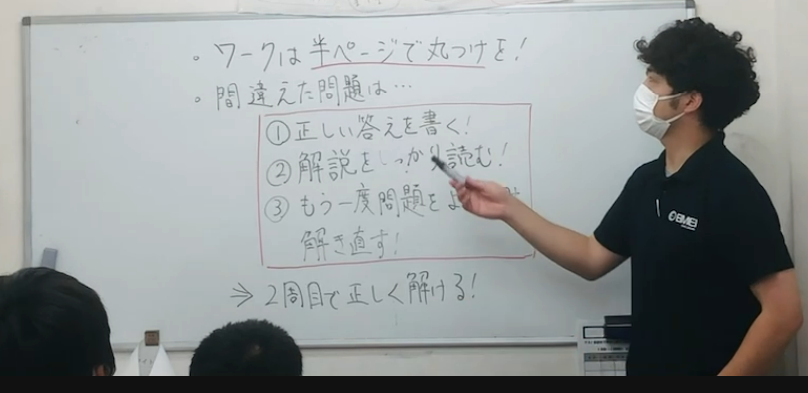 ・ワークは半ページで丸つけを！
・間違えた問題は…
①正しい答えを書く！
②解説をしっかり読む！
③もう一度問題をよ
解き直す！
⇒2周目で正しく解ける！
EIMEI